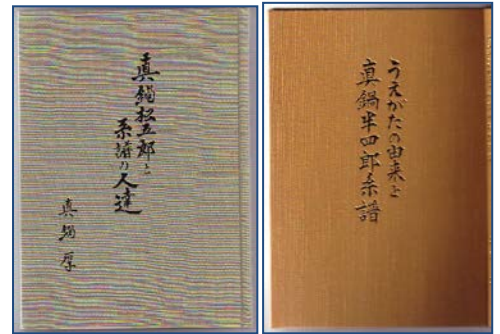 真鍋松五郎と
系譜の人達
真鍋厚
うえがたの由来と
真鍋半四郎系譜